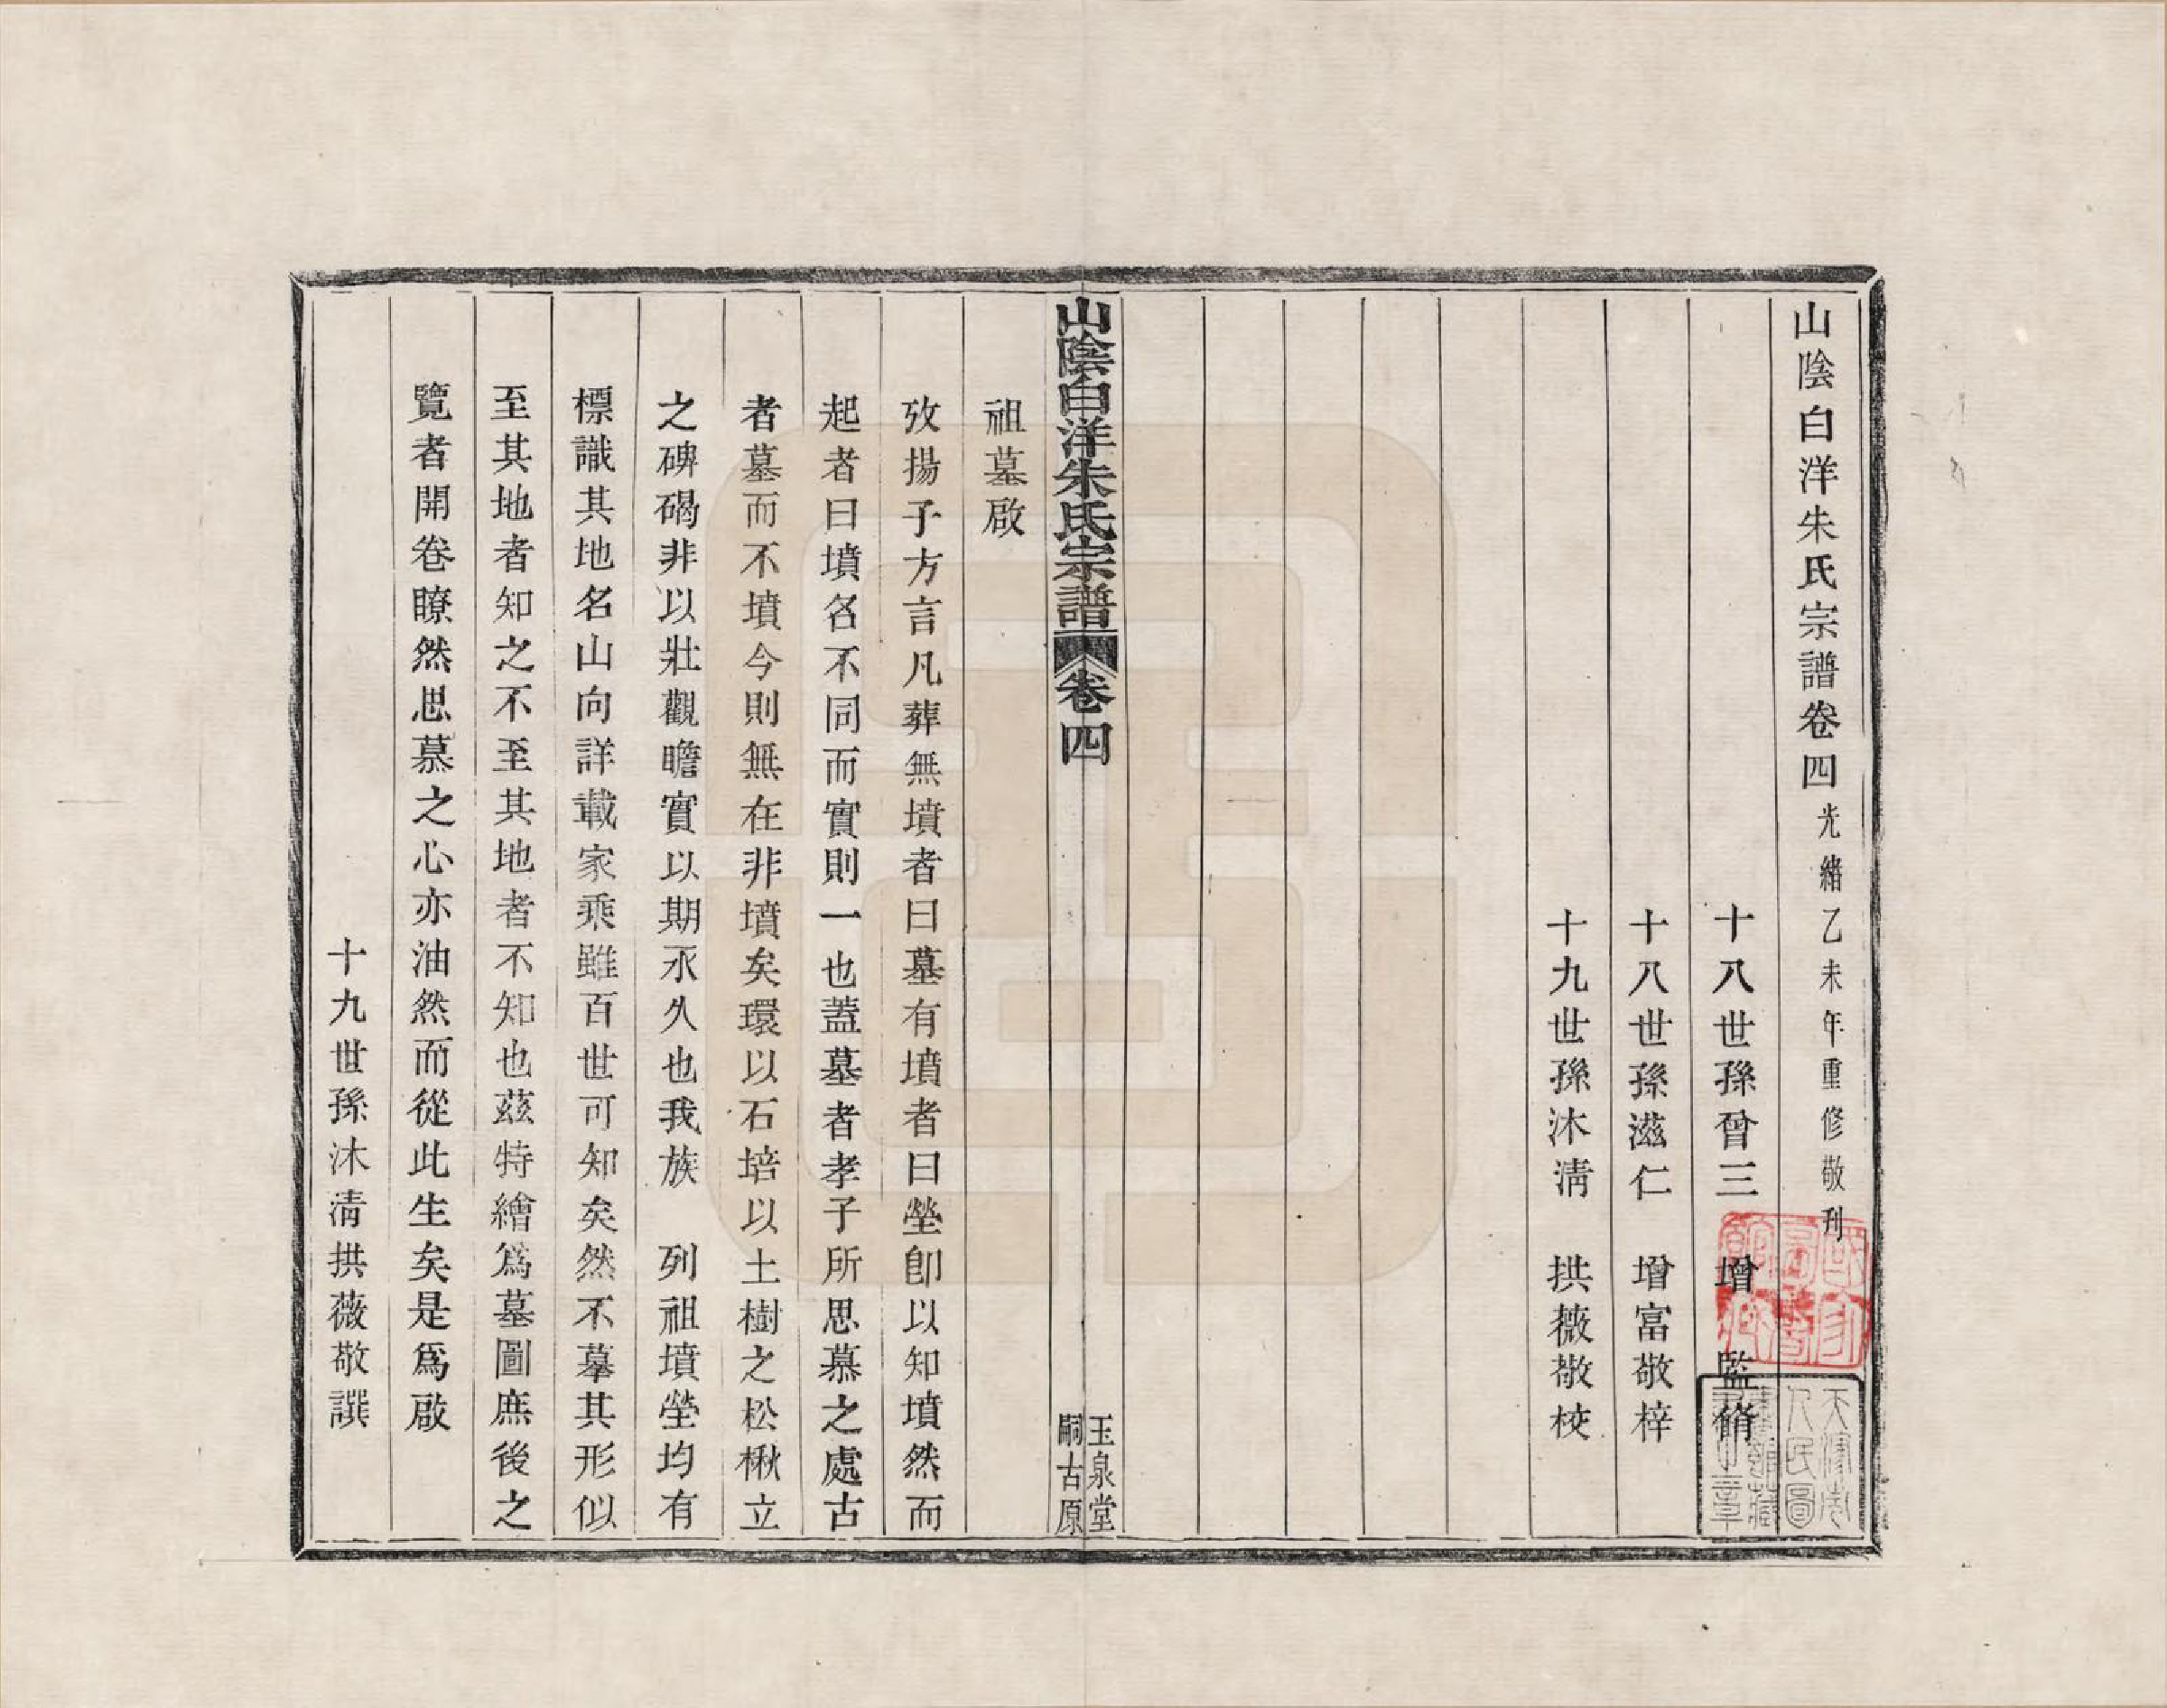 山陰白洋朱氏宗譜卷四光緖乙未年重修敬刋
十八世孫曾三　增　監脩
十八世孫滋仁　增富敬梓
十九世孫沐淸　拱薇敬校
山陰白洋朱氏宗譜　卷四
玉泉堂
嗣古原
祖墓啟
攷揚子方言凡葬無墳者曰墓有墳者曰塋卽以知墳然而
起者曰墳名不同而實則一也蓋墓者孝子所思慕之處古
者墓而不墳今則無在非墳矣環以石培以土樹之松楸立
之碑碣非以壯觀瞻實以期永久也我族　列祖墳塋均有
標識其地名山向詳載家乘雖百世可知矣然不摹其形似
至其地者知之不至其地者不知也茲特繪爲墓圖庶後之
覽者開卷瞭然思慕之心亦油然而從此生矣是爲啟
十九世孫沐淸拱薇敬譔
國家圖書館藏
天津市人民圖書館藏書之章